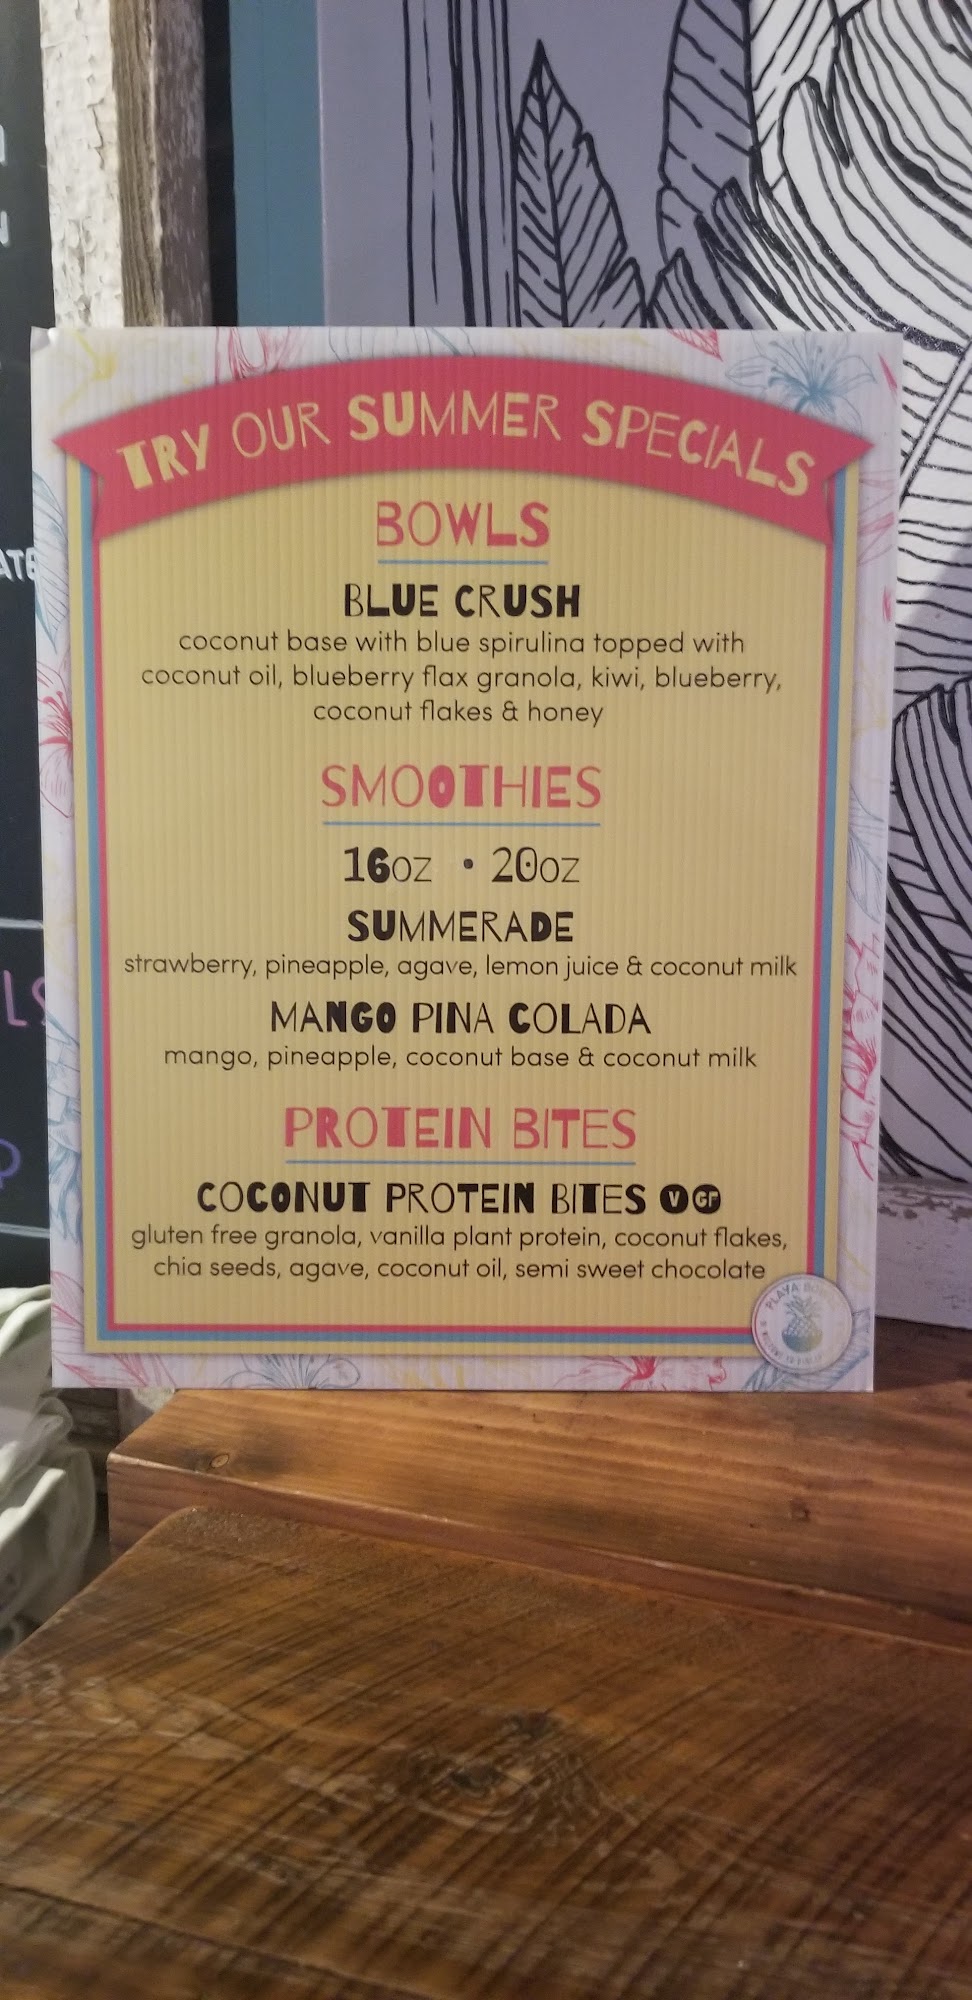 ATE
LS
TRY OUR SUMMER SPECIALS
BOWLS
BLUE CRUSH
coconut base with blue spirulina topped with
coconut oil, blueberry flax granola, kiwi, blueberry,
coconut flakes & honey
SMOOTHIES
16oz • 20oz
SUMMERADE
strawberry, pineapple, agave, lemon juice & coconut milk
MANGO PINA COLADA
mango, pineapple, coconut base & coconut milk
PROTEIN BITES
COCONUT PROTEIN BITES V GF
gluten free granola, vanilla plant protein, coconut flakes,
chia seeds, agave, coconut oil, semi sweet chocolate
PLAYA BOWLS